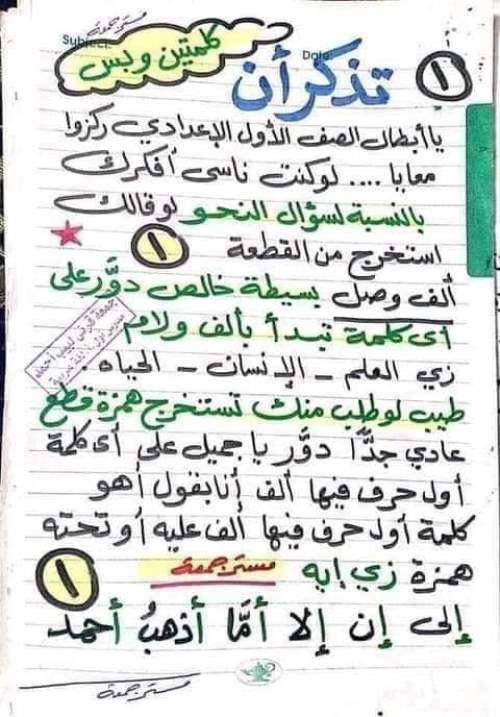 مستر جمعة
Subject:
كلمتين وبس
Date:
١
تذكر أن
يا أبطال الصف الأول الإعدادي ركزوا
معايا .... لو كنت ناسى أفكرك
بالنسبة لسؤال النحو لو قالك
استخرج من القطعة ١
ألف وصل بسيطة خالص دوَّر على
أى كلمة تبدأ بألف ولام
زي العلم - الإنسان - الحياه.
طيب لو طلب منك تستخرج همزة قطع
عادي جدًّا دوَّر يا جميل على أى كلمة
أول حرف فيها ألف أنا بقول أهو
كلمة أول حرف فيها ألف عليه أو تحته
همزة زي إيه مستر جمعة
١
إلى إن إلا أمَّا أذهبُ أحمد
مستر جمعة